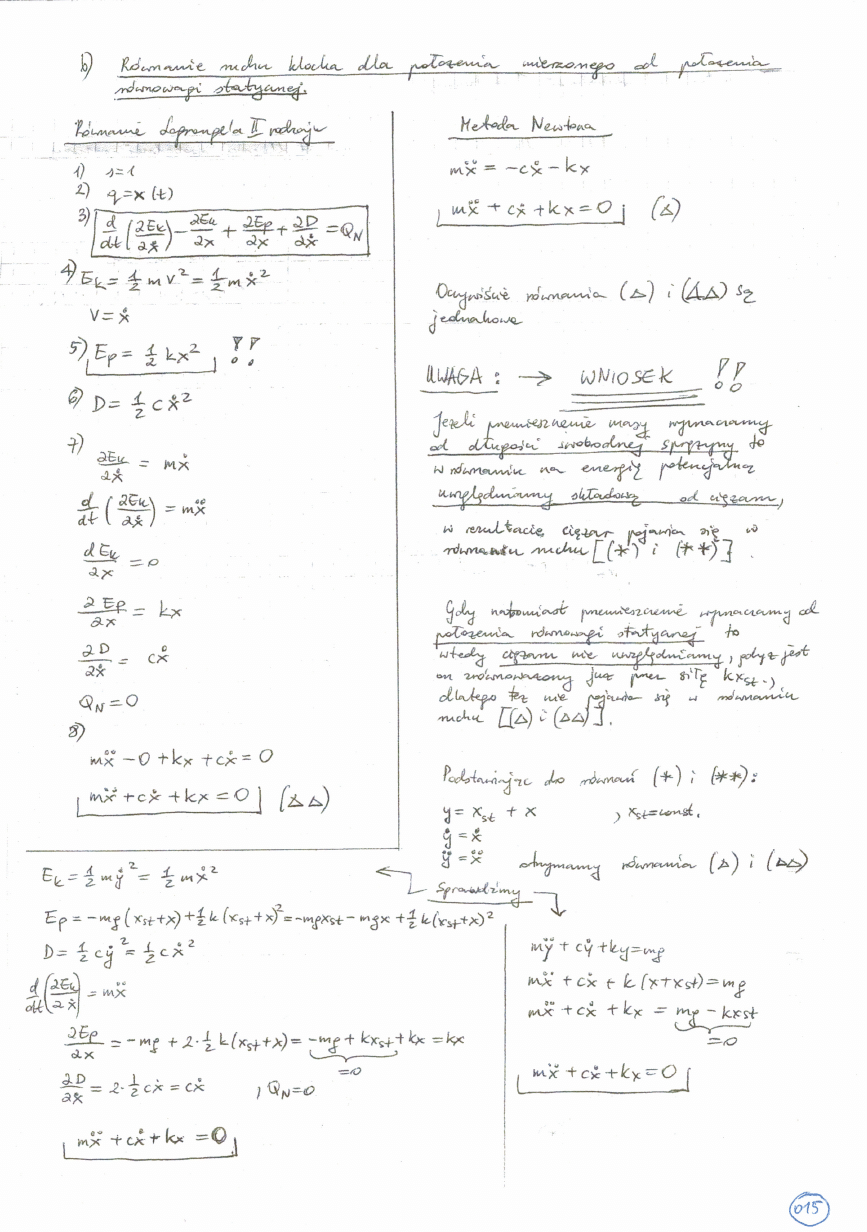 b) Równanie ruchu klocka dla położenia mierzonego od położenia
równowagi statycznej.
Równanie Lagrange'a II rodzaju
1) s=1
2) q=x(t)
3) d/dt (∂Ek/∂ẋ) − ∂Ek/∂x + ∂Ep/∂x + ∂D/∂ẋ = QN
4) Ek = 1/2 m v² = 1/2 m ẋ²
V = ẋ
5) Ep = 1/2 kx² !!
6) D = 1/2 c ẋ²
7)
∂Ek/∂ẋ = mẋ
d/dt (∂Ek/∂ẋ) = mẍ
dEk/∂x = 0
∂Ep/∂x = kx
∂D/∂ẋ = cẋ
QN = 0
8)
mẍ − 0 + kx + cẋ = 0
mẍ + cẋ + kx = 0 (△△)
Metoda Newtona
mẍ = −cẋ − kx
mẍ + cẋ + kx = 0 (△)
Oczywiście równania (△) i (△△) są
jednakowe
UWAGA: → WNIOSEK !!
Jeżeli przemieszczenie masy wyznaczamy
od długości swobodnej sprężyny to
w równaniu na energię potencjalną
uwzględniamy składową od ciężaru,
w rezultacie ciężar pojawia się w
równaniu ruchu [(*) i (**)].
Gdy natomiast przemieszczenie wyznaczamy od
położenia równowagi statycznej to
wtedy ciężaru nie uwzględniamy, gdyż jest
on zrównoważony już przez siłę kxst.,
dlatego też nie pojawia się w równaniu
ruchu [(△) i (△△)].
Podstawiając do równań (*) i (**):
y = xst + x , xst = const.
ẏ = ẋ
ÿ = ẍ otrzymamy równania (△) i (△△)
Sprawdźmy
Ek = 1/2 mẏ² = 1/2 mẋ²
Ep = −mg(xst+x) + 1/2 k(xst+x)² = −mgxst − mgx + 1/2 k(xst+x)²
D = 1/2 cẏ² = 1/2 cẋ²
d/dt (∂Ek/∂ẋ) = mẍ
∂Ep/∂x = −mg + 2·1/2 k(xst+x) = −mg + kxst + kx = kx
=0
∂D/∂ẋ = 2·1/2 cẋ = cẋ , QN=0
mẍ + cẋ + kx = 0
mÿ + cẏ + ky = mg
mẍ + cẋ + k(x+xst) = mg
mẍ + cẋ + kx = mg − kxst
=0
mẍ + cẋ + kx = 0
015